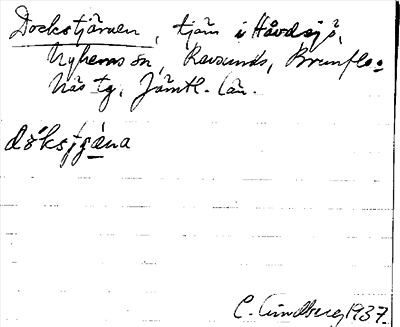 Dockstjärnen, tjärn i Håvdsjö,
Nyhems sn, Revsunds, Brunflo o
Näs tg, Jämtl. län.
dǒ́ksjtjɛ̀na
C. Lindberg 1937.